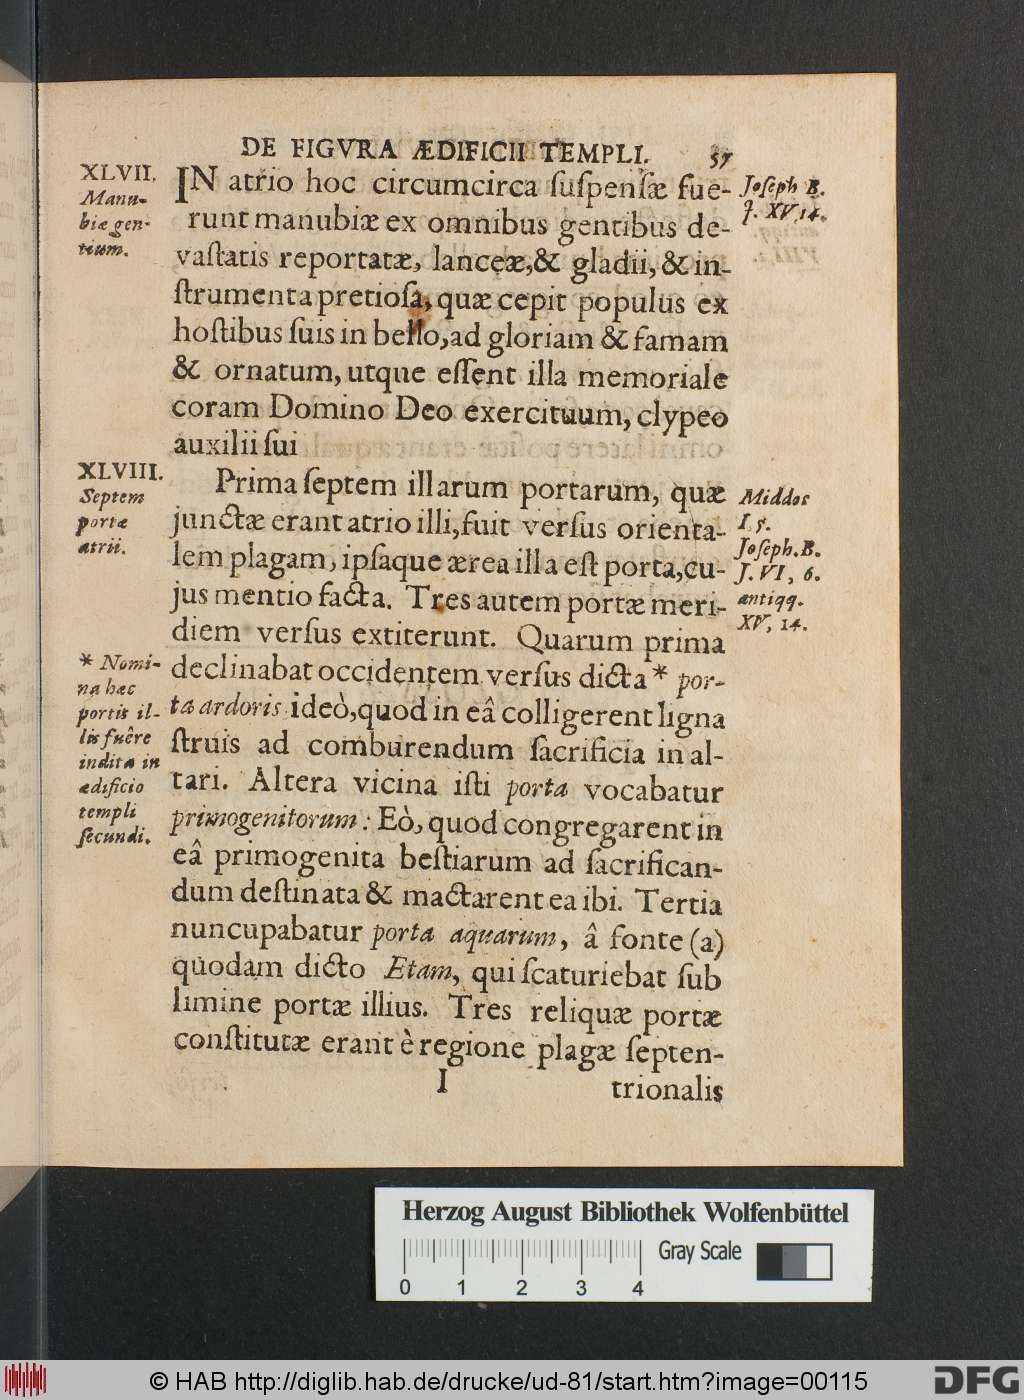 DE FIGVRA ÆDIFICII TEMPLI. 57
XLVII.
Manu-
biæ gen-
tium.
IN atrio hoc circumcirca ſuſpenſæ fue-
runt manubiæ ex omnibus gentibus de-
vaſtatis reportatæ, lanceæ, & gladii, & in-
ſtrumenta pretioſa, quæ cepit populus ex
hoſtibus ſuis in bello, ad gloriam & famam
& ornatum, utque eſſent illa memoriale
coram Domino Deo exercituum, clypeo
auxilii ſui
Joſeph B.
J. XV, 14.
XLVIII.
Septem
portæ
atrii.
Prima ſeptem illarum portarum, quæ
junctæ erant atrio illi, fuit verſus orienta-
lem plagam, ipſaque ærea illa eſt porta, cu-
jus mentio facta. Tres autem portæ meri-
diem verſus extiterunt. Quarum prima
declinabat occidentem verſus dicta * por-
ta ardoris ideò, quod in eâ colligerent ligna
ſtruis ad comburendum ſacrificia in al-
tari. Altera vicina iſti porta vocabatur
primogenitorum: Eò, quod congregarent in
eâ primogenita beſtiarum ad ſacrifican-
dum deſtinata & mactarent ea ibi. Tertia
nuncupabatur porta aquarum, â fonte (a)
quodam dicto Etam, qui ſcaturiebat ſub
limine portæ illius. Tres reliquæ portæ
conſtitutæ erant è regione plagæ ſepten-
Middos
I 5.
Joſeph. B.
J. VI, 6.
antiqq.
XV, 14.
* Nomi-
na hæc
portis il-
lis fuêre
indita in
ædificio
templi
ſecundi.
I trionalis
Herzog August Bibliothek Wolfenbüttel
Gray Scale
0 1 2 3 4
© HAB http://diglib.hab.de/drucke/ud-81/start.htm?image=00115
DFG